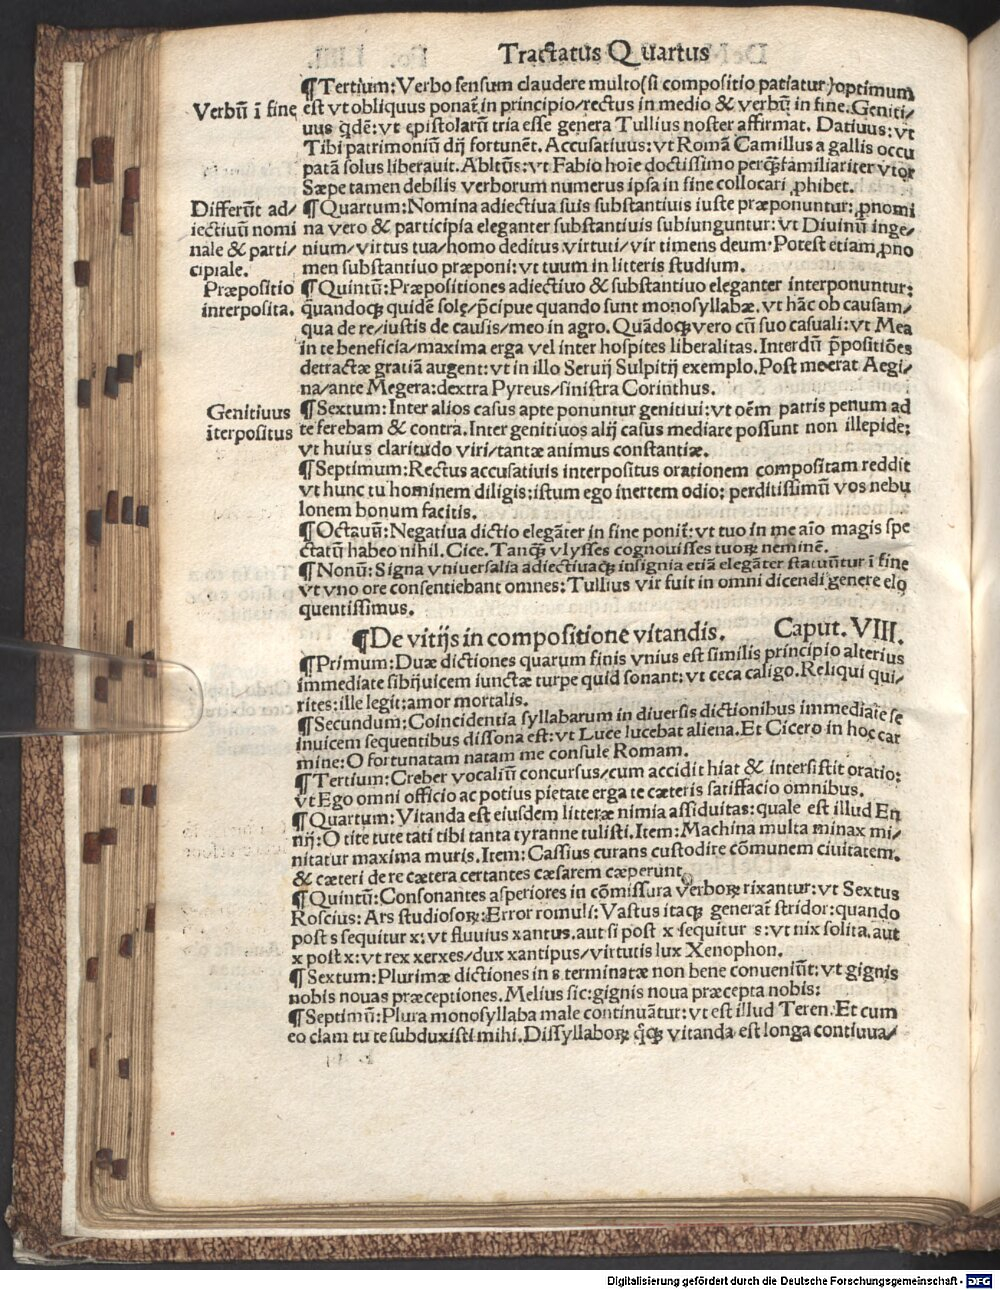 Tractatus Quartus
¶Tertium: Verbo sensum claudere multo(si compositio patiatur)optimum
Verbū ī fine
est vt obliquus ponat̄ in principio/rectus in medio & verbū in fine. Geniti/
uus q̄dē: vt epistolarū tria esse genera Tullius noster affirmat. Datiuus: vt
Tibi patrimoniū dij fortunēt. Accusatiuus: vt Romā Camillus a gallis occu
patā solus liberauit. Abltūs: vt Fabio hoīe doctissimo perꝗ̄familiariter vtor
Sæpe tamen debilis verborum numerus ipsa in fine collocari ꝓhibet.
Differūt ad/
iectiuū nomi
nale & parti/
cipiale.
¶Quartum: Nomina adiectiua suis substantiuis iuste præponuntur: ꝓnomi
na vero & participia eleganter substantiuis subiunguntur: vt Diuinū inge/
nium/virtus tua/homo deditus virtuti/vir timens deum. Potest etiam ꝓno
men substantiuo præponi: vt tuum in litteris studium.
Præpositio
interposita.
¶Quintū: Præpositiones adiectiuo & substantiuo eleganter interponuntur:
quandoqꝫ quidē sole/p̄cipue quando sunt monosyllabæ. vt hāc ob causam/
qua de re/iustis de causis/meo in agro. Quādoqꝫ vero cū suo casuali: vt Mea
in te beneficia/maxima erga vel inter hospites liberalitas. Interdū p̄positiōes
detractæ gratiā augent: vt in illo Seruij Sulpitij exemplo. Post me erat Aegi/
na/ante Megera: dextra Pyreus/sinistra Corinthus.
Genitiuus
īterpositus
¶Sextum: Inter alios casus apte ponuntur genitiui: vt oēm patris penum ad
te ferebam & contra. Inter genitiuos alij casus mediare possunt non illepide:
vt huius claritudo viri/tantæ animus constantiæ.
¶Septimum: Rectus accusatiuis interpositus orationem compositam reddit
vt hunc tu hominem diligis: istum ego inertem odio: perditissimū vos nebu
lonem bonum facitis.
¶Octauū: Negatiua dictio elegāter in fine ponit̄: vt tuo in me aīo magis spe
ctatū habeo nihil. Cice. Tanꝗ̄ vlysses cognouisses tuoꝝ neminē.
¶Nonū: Signa vniuersalia adiectiuaqꝫ insignia etiā elegāter statuūntur ī fine
vt vno ore consentiebant omnes: Tullius vir fuit in omni dicendi genere elo
quentissimus.
¶De vitijs in compositione vitandis. Caput. VIII.
¶Primum: Duæ dictiones quarum finis vnius est similis principio alterius
immediate sibijuicem iunctæ turpe quid sonant: vt ceca caligo. Reliqui qui/
rites: ille legit: amor mortalis.
¶Secundum: Coincidentia syllabarum in diuersis dictionibus immediate se
inuicem sequentibus dissona est: vt Luce lucebat aliena. Et Cicero in hoc car
mine: O fortunatam natam me consule Romam.
¶Tertium: Creber vocaliū concursus/cum accidit hiat & intersistit oratio:
vt Ego omni officio ac potius pietate erga te cæteris satisfacio omnibus.
¶Quartum: Vitanda est eiusdem litteræ nimia assiduitas: quale est illud En
nij: O tite tute tati tibi tanta tyranne tulisti. Item: Machina multa minax mi/
nitatur maxima muris. Item: Cassius curans custodire cōmunem ciuitatem.
& cæteri de re cætera certantes cæsarem cæperunt.
¶Quintū: Consonantes asperiores in cōmissura verboꝝ rixantur: vt Sextus
Roscius: Ars studiosoꝝ: Error romuli: Vastus itaqꝫ generat̄ stridor: quando
post s sequitur x: vt fluuius xantus. aut si post x sequitur s: vt nix solita. aut
x post x: vt rex xerxes/dux xantipus/virtutis lux Xenophon.
¶Sextum: Plurimæ dictiones in s terminatæ non bene conueniūt: vt gignis
nobis nouas præceptiones. Melius sic: gignis noua præcepta nobis:
¶Septimū: Plura monosyllaba male continuātur: vt est illud Teren. Et cum
eo clam tu te subduxisti mihi. Dissyllaboꝝ q̄qꝫ vitanda est longa contiuua/
Digitalisierung gefördert durch die Deutsche Forschungsgemeinschaft - DFG